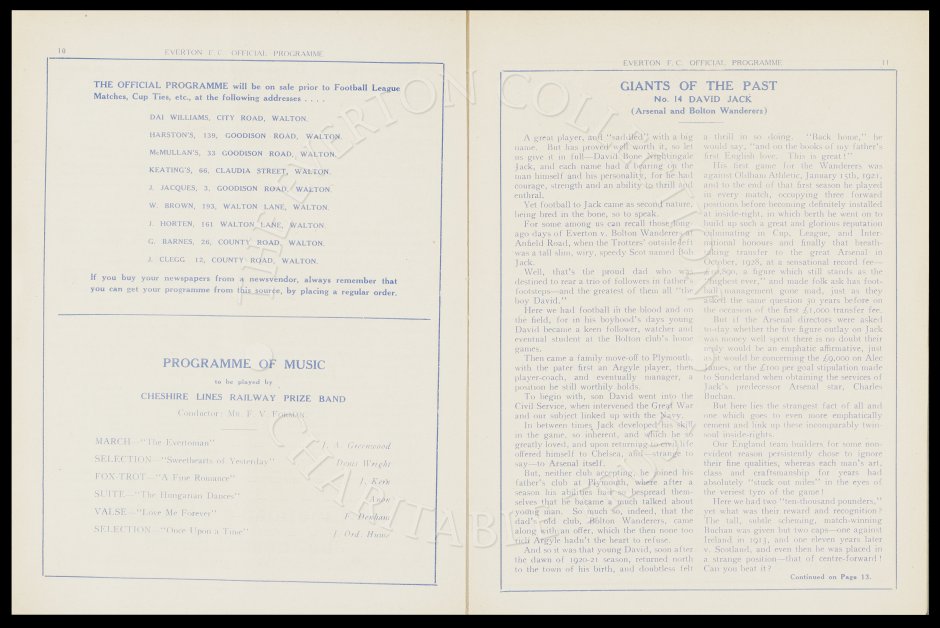 10
EVERTON F.C. OFFICIAL PROGRAMME
THE OFFICIAL PROGRAMME will be on sale prior to Football League
Matches, Cup Ties, etc., at the following addresses . . . .
DAI WILLIAMS, CITY ROAD, WALTON.
HARSTON'S, 139, GOODISON ROAD, WALTON.
McMULLAN'S, 33 GOODISON ROAD, WALTON.
KEATING'S, 66, CLAUDIA STREET, WALTON.
J. JACQUES, 3, GOODISON ROAD, WALTON.
W. BROWN, 193, WALTON LANE, WALTON.
J. HORTEN, 161 WALTON LANE, WALTON.
G. BARNES, 26, COUNTY ROAD, WALTON.
J. CLEGG 12, COUNTY ROAD, WALTON.
If you buy your newspapers from a newsvendor, always remember that
you can get your programme from this source, by placing a regular order.
PROGRAMME OF MUSIC
to be played by
CHESHIRE LINES RAILWAY PRIZE BAND
Conductor: MR. F. V. FORMAN
MARCH—"The Evertonian" J. A. Greenwood
SELECTION—"Sweethearts of Yesterday" Denis Wright
FOX-TROT—"A Fine Romance" J. Kern
SUITE—"The Hungarian Dances" Anon
VALSE—"Love Me Forever" F. Denham
SELECTION—"Once Upon a Time" J. Ord. Hume
EVERTON F.C. OFFICIAL PROGRAMME
11
GIANTS OF THE PAST
No. 14 DAVID JACK
(Arsenal and Bolton Wanderers)
A great player, and "saddled" with a big
name. But has proved well worth it, so let
us give it in full—David Bone Nightingale
Jack, and each name had a bearing on the
man himself and his personality, for he had
courage, strength and an ability to thrill and
enthral.
Yet football to Jack came as second nature,
being bred in the bone, so to speak.
For some among us can recall those long-
ago days of Everton v. Bolton Wanderers at
Anfield Road, when the Trotters' outside-left
was a tall slim, wiry, speedy Scot named Bob
Jack.
Well, that's the proud dad who was
destined to rear a trio of followers in father's
footsteps—and the greatest of them all "the
boy David."
Here we had football in the blood and on
the field, for in his boyhood's days young
David became a keen follower, watcher and
eventual student at the Bolton club's home
games.
Then came a family move-off to Plymouth,
with the pater first an Argyle player, then
player-coach, and eventually manager, a
position he still worthily holds.
To begin with, son David went into the
Civil Service, when intervened the Great War
and our subject linked up with the Navy.
In between times Jack developed his skill
in the game, so inherent, and which he so
greatly loved, and upon returning to civil life
offered himself to Chelsea, and—strange to
say—to Arsenal itself.
But, neither club accepting, he joined his
father's club at Plymouth, where after a
season his abilities had so bespread them-
selves that he became a much talked about
young man. So much so, indeed, that the
dad's old club, Bolton Wanderers, came
along with an offer, which the then none too
rich Argyle hadn't the heart to refuse.
And so it was that young David, soon after
the dawn of 1920-21 season, returned north
to the town of his birth, and doubtless felt
a thrill in so doing. "Back home," he
would say, "and on the books of my father's
first English love. This is great!"
His first game for the Wanderers was
against Oldham Athletic, January 15th, 1921,
and to the end of that first season he played
in every match, occupying three forward
positions before becoming definitely installed
at inside-right, in which berth he went on to
build up such a great and glorious reputation
culminating in Cup, League, and Inter-
national honours and finally that breath-
taking transfer to the great Arsenal in
October, 1928, at a sensational record fee—
£10,890, a figure which still stands as the
"highest ever," and made folk ask has foot-
ball management gone mad, just as they
asked the same question 30 years before on
the occasion of the first £1,000 transfer fee.
But if the Arsenal directors were asked
to-day whether the five figure outlay on Jack
was money well spent there is no doubt their
reply would be an emphatic affirmative, just
as it would be concerning the £9,000 on Alec
James, or the £100 per goal stipulation made
to Sunderland when obtaining the services of
Jack's predecessor Arsenal star, Charles
Buchan.
But here lies the strangest fact of all and
one which goes to even more emphatically
cement and link up these incomparably twin-
soul inside-rights.
Our England team builders for some non-
evident reason persistently chose to ignore
their fine qualities, whereas each man's art,
class and craftsmanship for years had
absolutely "stuck out miles" in the eyes of
the veriest tyro of the game!
Here we had two "ten-thousand pounders,"
yet what was their reward and recognition?
The tall, subtle scheming, match-winning
Buchan was given but two caps—one against
Ireland in 1913, and one eleven years later
v. Scotland, and even then he was placed in
a strange position—that of centre-forward!
Can you beat it?
Continued on Page 13.